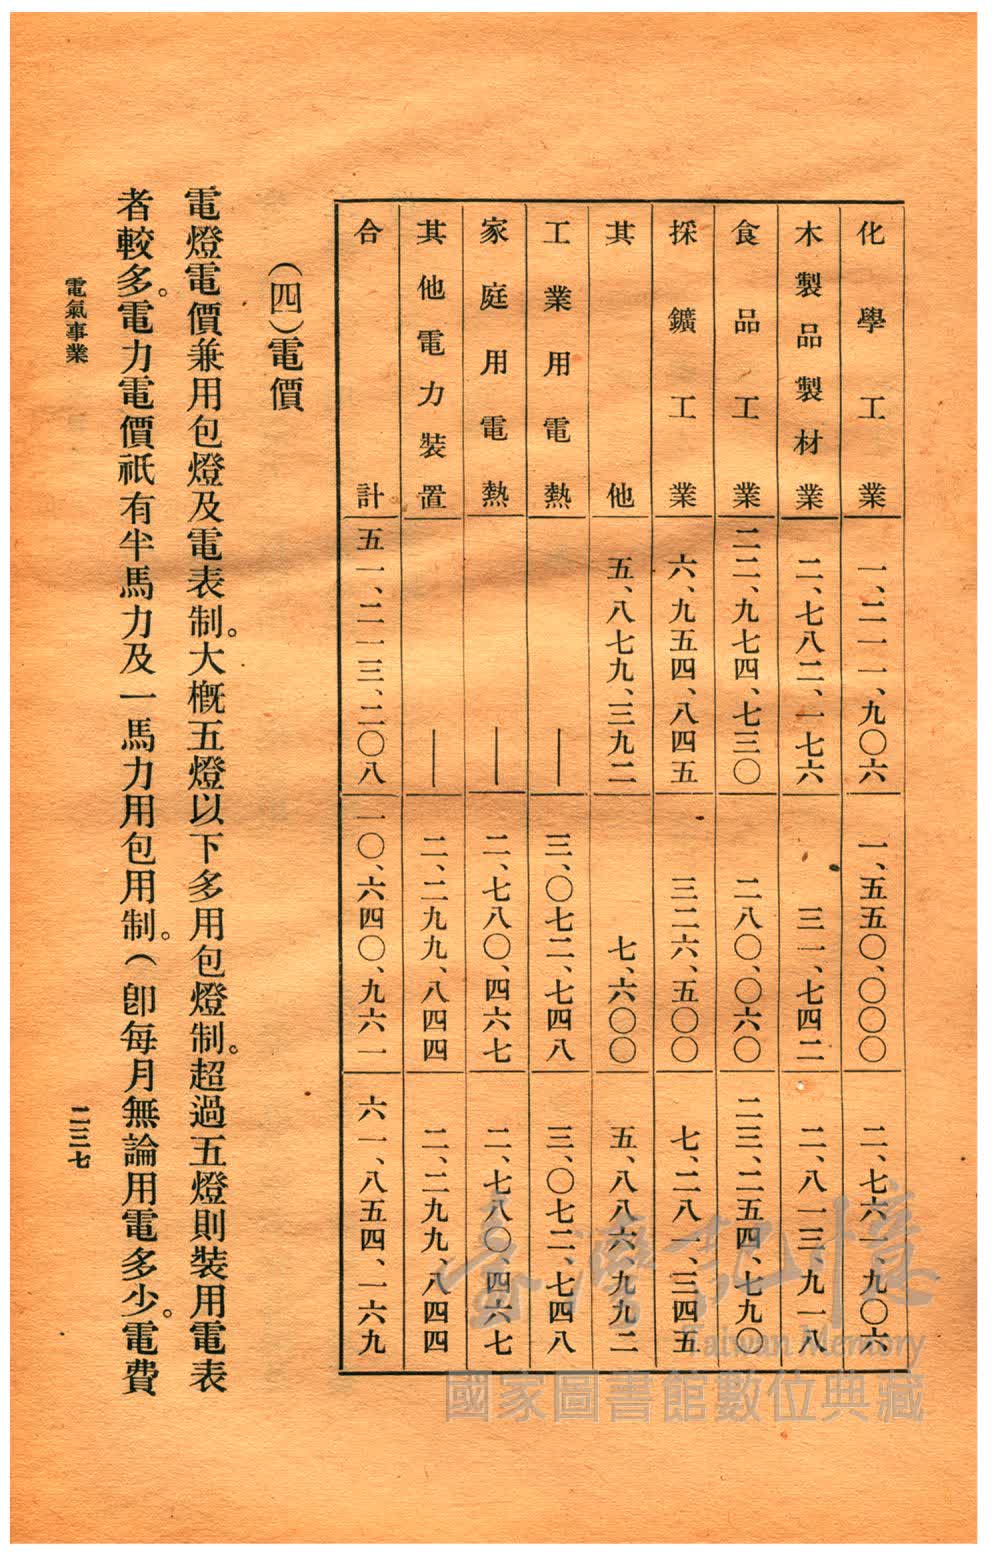 化學工業 一、二一一、九〇六 一、五五〇、〇〇〇 二、七六一、九〇六
木製品製材業 二、七八二、一七六 三一、七四二 二、八一三、九一八
食品工業 二二、九七四、七三〇 二八〇、〇六〇 二三、二五四、七九〇
採鑛工業 六、九五四、八四五 三二六、五〇〇 七、二八一、三四五
其他 五、八七九、三九二 七、六〇〇 五、八八六、九九二
工業用電熱 —— 三、〇七二、七四八 三、〇七二、七四八
家庭用電熱 —— 二、七八〇、四六七 二、七八〇、四六七
其他電力裝置 —— 二、二九九、八四四 二、二九九、八四四
合計 五一、二一三、二〇八 一〇、六四〇、九六一 六一、八五四、一六九
(四)電價
電燈電價兼用包燈及電表制。大概五燈以下多用包燈制。超過五燈則裝用電表
者較多。電力電價祇有半馬力及一馬力用包用制。(卽每月無論用電多少。電費
電氣事業
二三七
臺灣記憶
Taiwan Memory
國家圖書館數位典藏